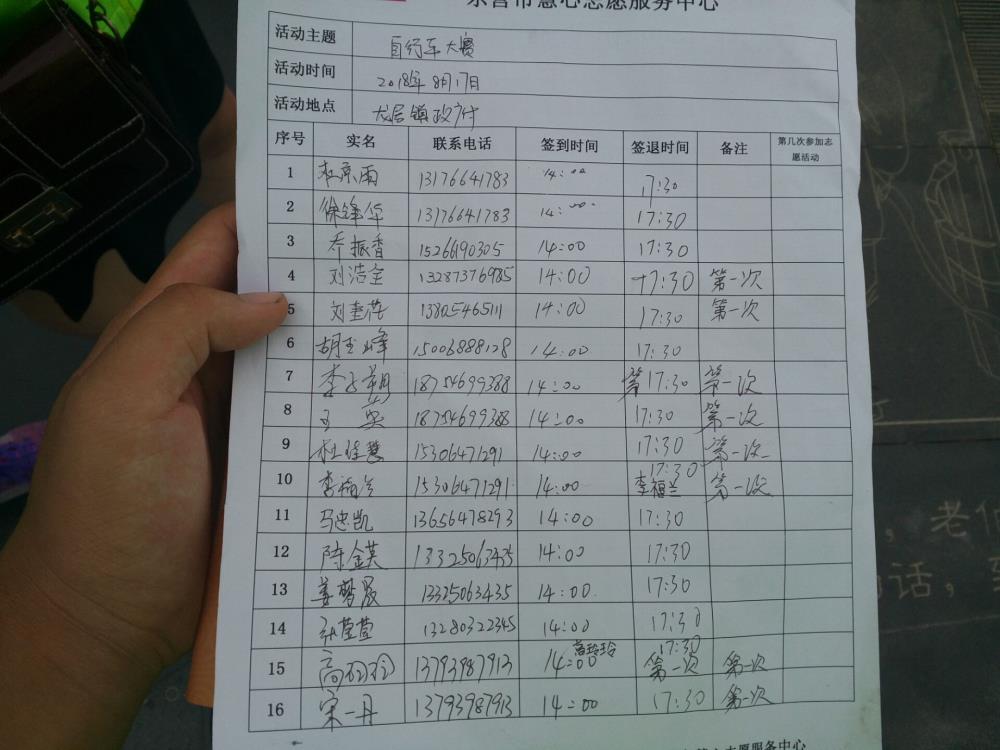 东营市慧心志愿服务中心
活动主题 自行车大赛
活动时间 2018年8月17日
活动地点 龙居镇政府
序号 实名 联系电话 签到时间 签退时间 备注 第几次参加志愿活动
1 13176641783 14:00 17:30
2 徐锋华 13176641783 14:00 17:30
3 乔振香 15266190305 14:00 17:30
4 刘浩宇 13287376985 14:00 17:30 第一次
5 刘奎萍 13805465111 14:00 17:30 第一次
6 胡玉峰 15006888128 14:00 17:30
7 李子朝 18754699388 14:00 第17:30 第一次
8 王英 18754699388 14:00 17:30 第一次
9 杜佳慧 15306471291 14:00 17:30 第一次
10 李福兰 15306471291 14:00 17:30 李福兰 第一次
11 马忠凯 13656478293 14:00 17:30
12 陈金英 13325063435 14:00 17:30
13 姜梦晨 13325063435 14:00 17:30
14 莹莹 13280322345 14:00 17:30
15 高玲玲 13793987913 14:00 高玲玲 17:30 第一次 第一次
16 宋一丹 13793987913 14:00 17:30 第一次
志愿服务中心
老
话，